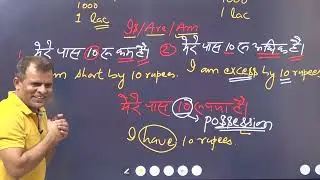 1000 1000
1 lac 1 lac
Is/Are/Am
मेरे पास 10 रु कम है। ② मेरे पास 10 रु अधिक है।
I am short by 10 rupees. I am excess by 10 rupees.
मेरे पास 10 रुपया है।
possession
I have 10 rupees